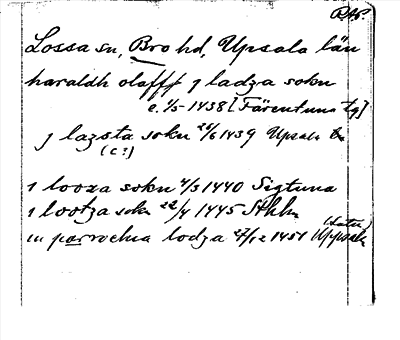 RAP.
Lossa sn, Bro hd, Upsala län
haraldh olaffss j ladza sokn
e. 1/5-1438 [Färentuna tg]
j lazsta sokn 26/6 1439 Upsala
(c?)
j looza sokn 4/3 1440 Sigtuna
j lootza sokn 22/4 1445 Sthlm
(Latin)
in parrochia lodza 27/12 1451 Uppsala